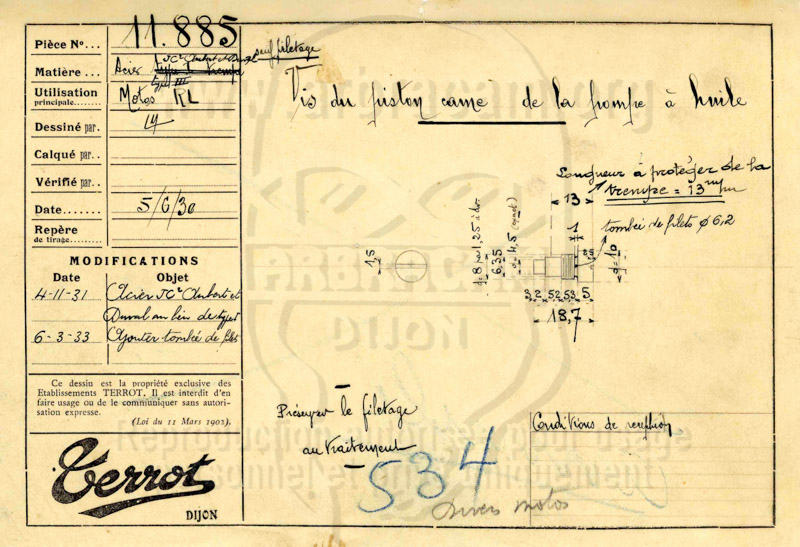 Pièce N°... 11.885
Matière... Acier JCz Aubert et Duval sauf filetage
type I trempé
type III
Utilisation
principale........ Motos RL
Dessiné par.
Calqué par..
Vérifié par..
Date........ 5/6/30
Repère
de tirage........
MODIFICATIONS
Date Objet
4-11-31 Acier JCz Aubert et
Duval au lieu de type I
6-3-33 Ajouter tombée de filets
Ce dessin est la propriété exclusive des
Etablissements TERROT. Il est interdit d'en
faire usage ou de le communiquer sans autori-
sation expresse.
(Loi du 11 Mars 1902).
Terrot
DIJON
Vis du piston came de la pompe à huile
Longueur à protéger de la
trempe = 13 mm
13
tombée de filets ø 6,2
1
1,5
6,35
d=10
3,2 5,2 5,3 5
18,7
Préserver le filetage
au traitement
534
Divers motos
Conditions de réception
DIJON